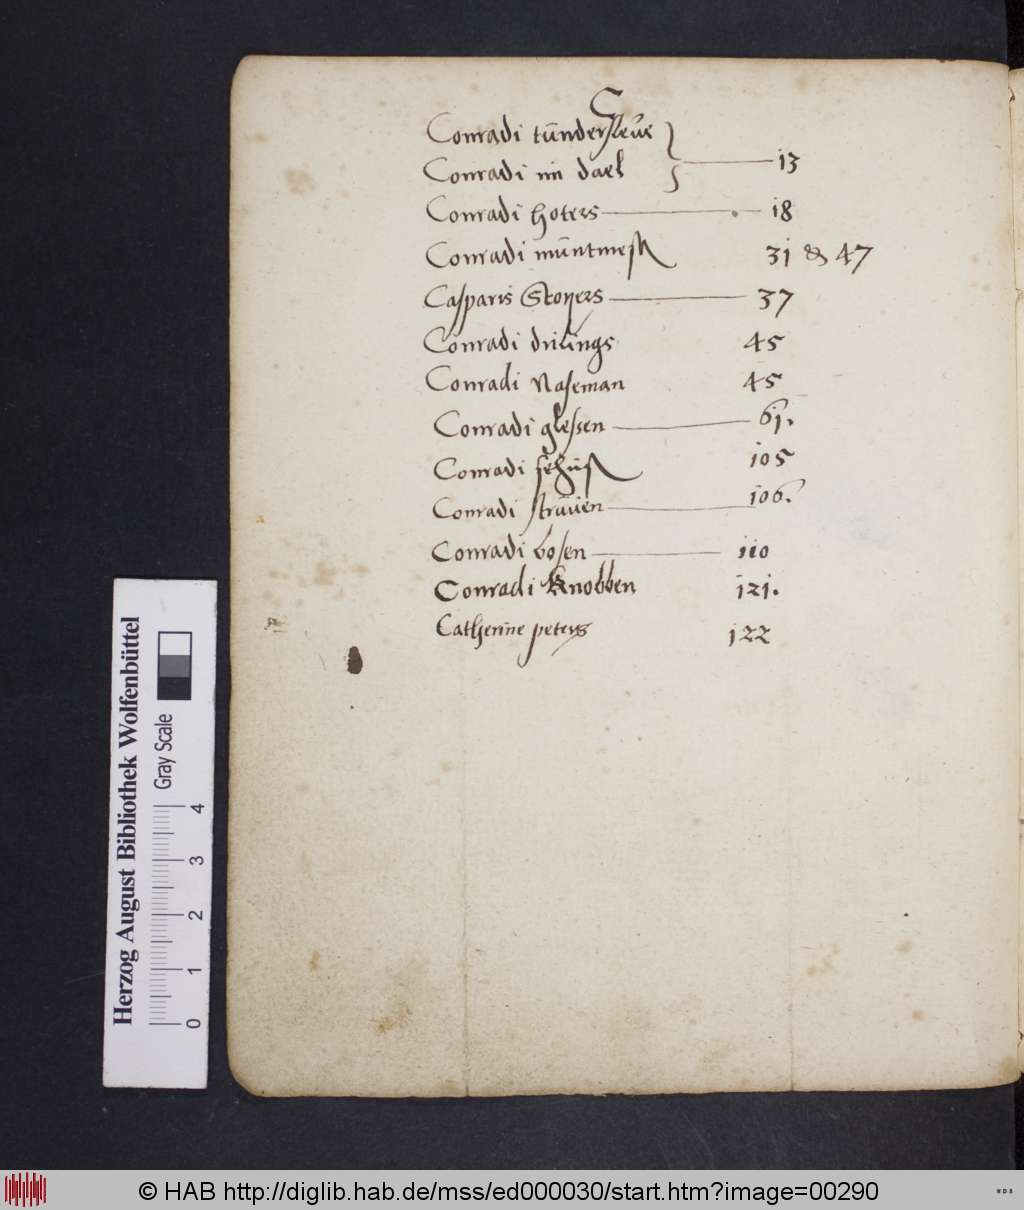 C
Conradi tündersleüe } 13
Conradi im dael
Conradi hoters 18
Conradi müntmest 31 & 47
Casparis Stoÿers 37
Conradi drilings 45
Conradi Naseman 45
Conradi glessen 61.
Conradi 105
Conradi strüüen 106.
Conradi bosen 110
Conradi Knobben 121.
Catherine peters 122
Herzog August Bibliothek Wolfenbüttel
Gray Scale
0 1 2 3 4
© HAB http://diglib.hab.de/mss/ed000030/start.htm?image=00290